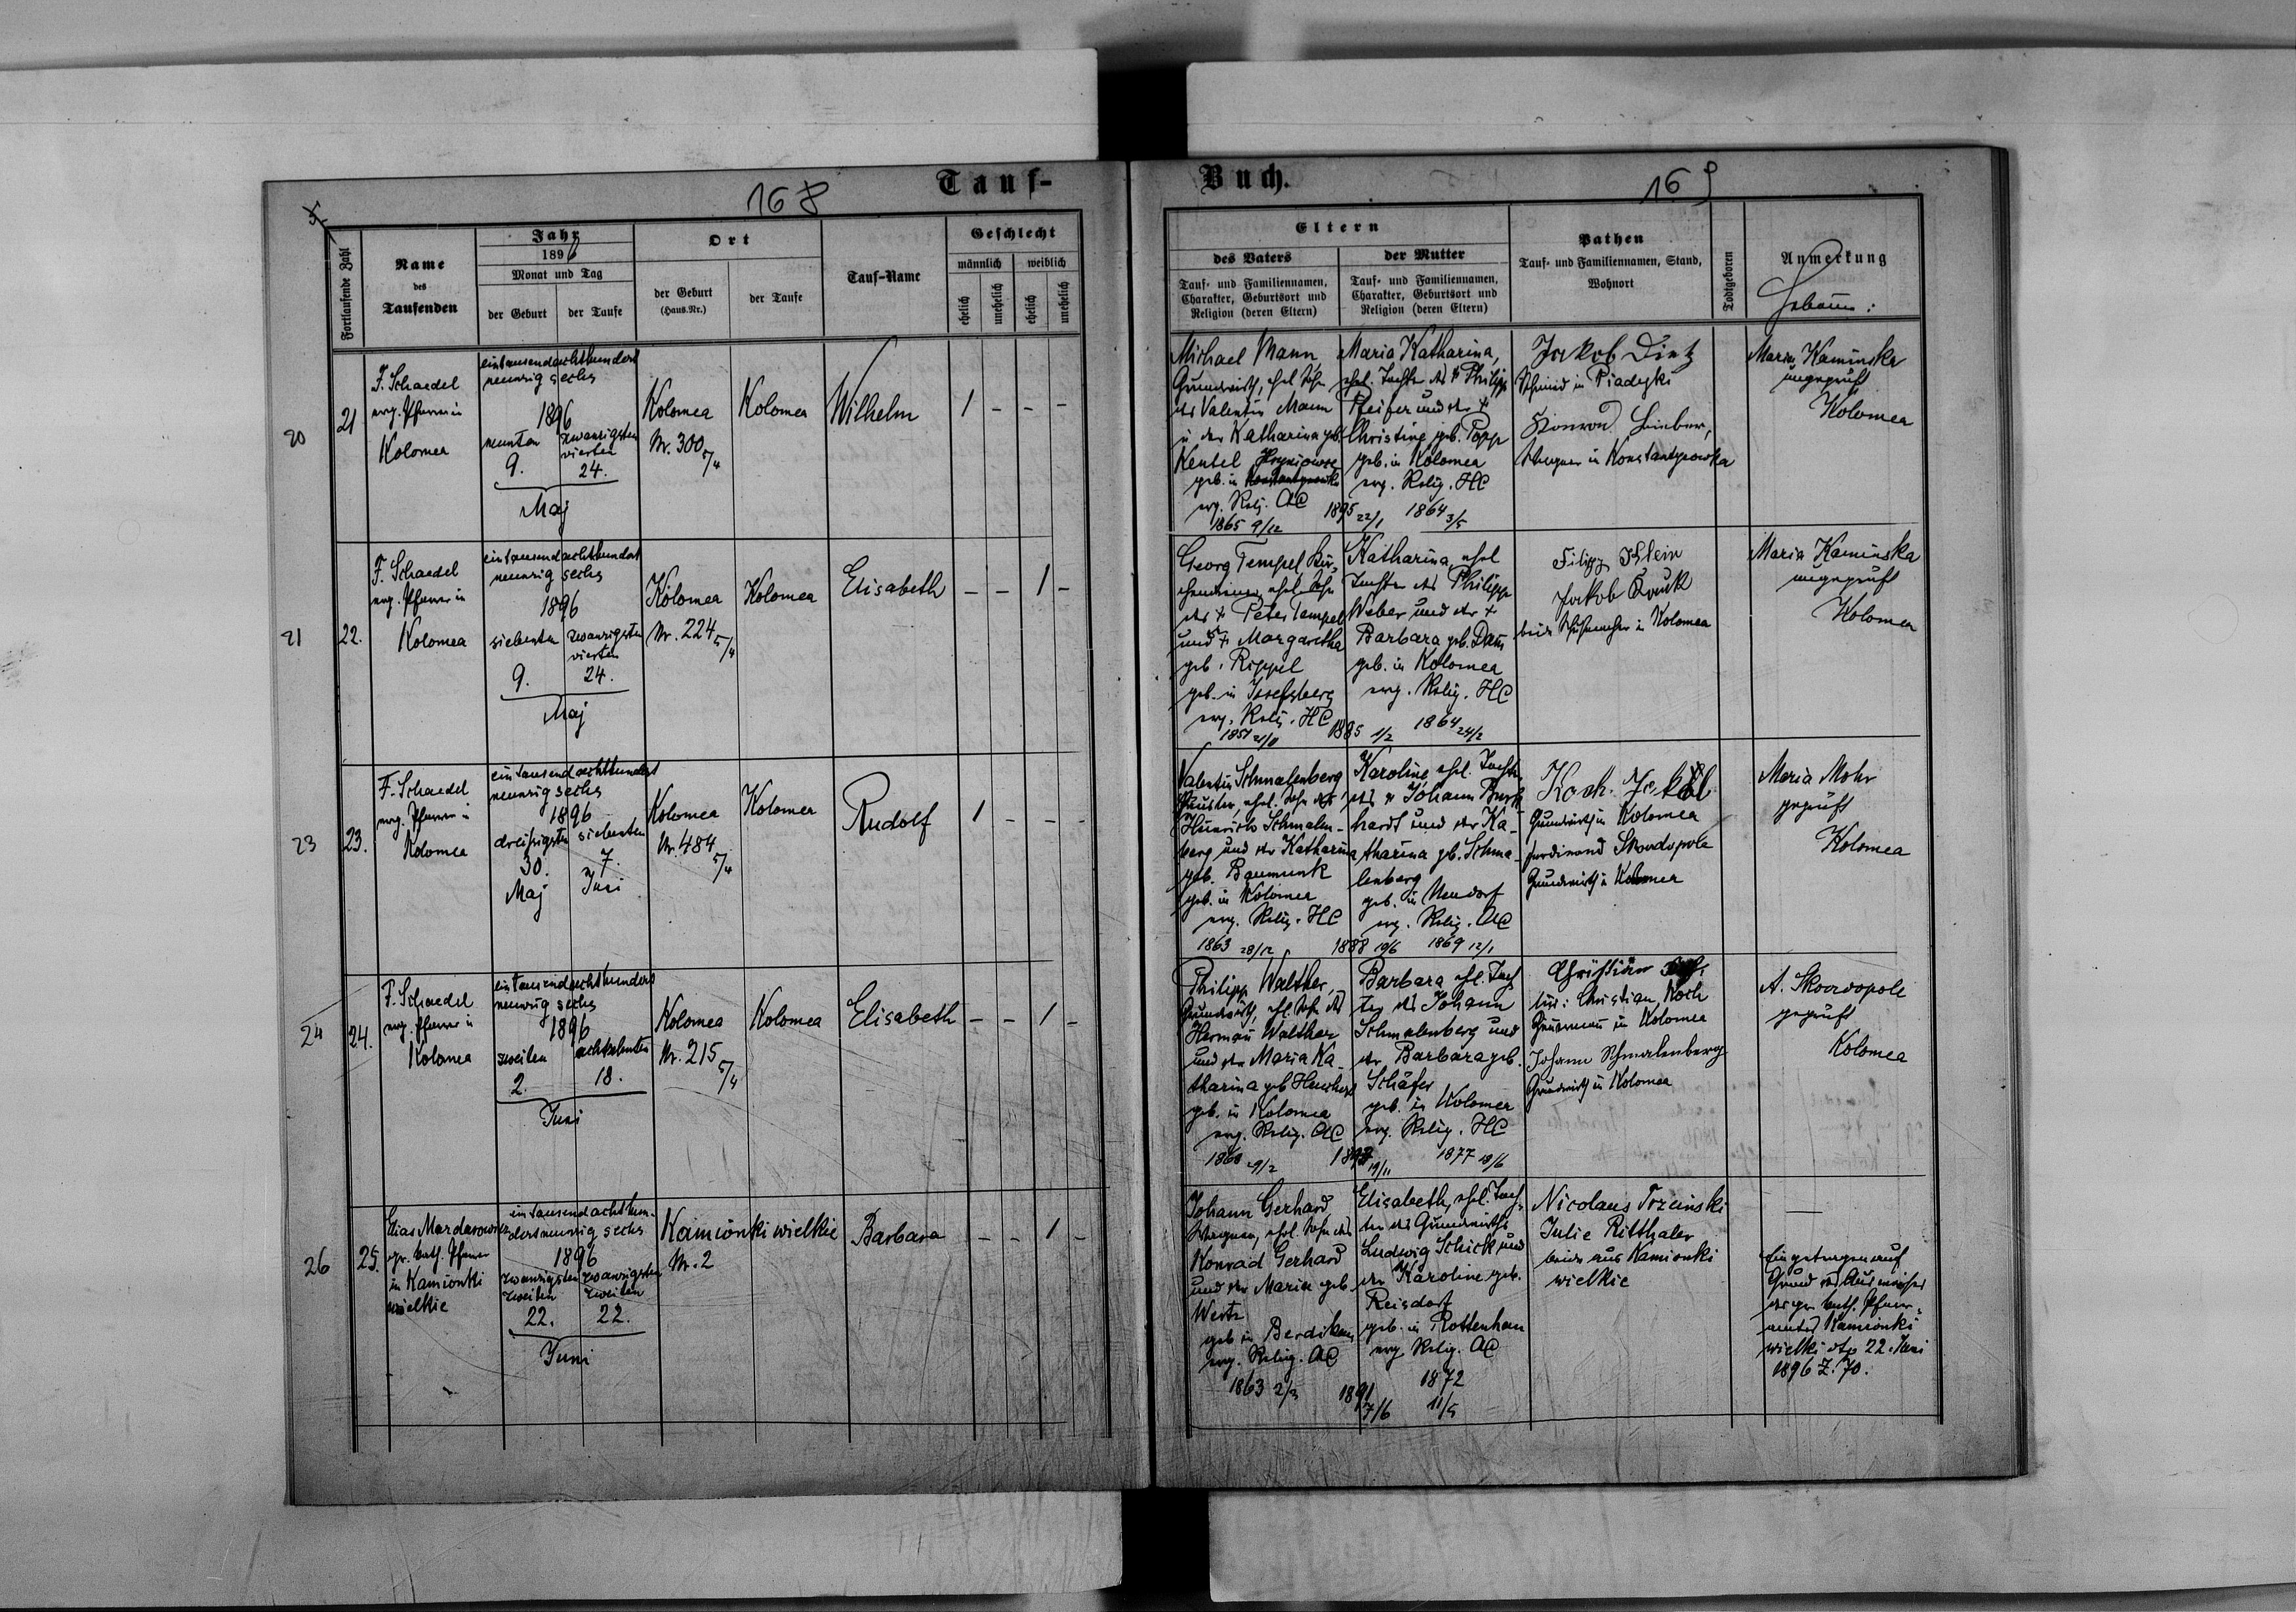 168
Tauf-
Fortlaufende Zahl
Name
des
Taufenden
Jahr
1896
Monat und Tag
der Geburt
der Taufe
Ort
der Geburt
(Haus-Nr.)
der Taufe
Tauf-Name
Geschlecht
männlich
weiblich
ehelich
unehelich
ehelich
unehelich
20
21
F. Schaedel
evg. Pfarrer in
Kolomea
eintausendachthundert
neunzig sechs
1896
neunten
9.
zwanzigsten
vierten
24.
Maj
Kolomea
Nr. 300
5/4
Kolomea
Wilhelm
1 - - -
21
22.
F. Schaedel
evg. Pfarrer in
Kolomea
eintausendachthundert
neunzig sechs
1896
siebenten
9.
zwanzigsten
vierten
24.
Maj
Kolomea
Nr. 224 5/4
Kolomea
Elisabeth
- - 1 -
23
23.
F. Schaedel
evg. Pfarrer in
Kolomea
eintausendachthundert
neunzig sechs
1896
dreißigsten
30.
Maj
siebenten
7.
Juni
Kolomea
Nr. 484
5/4
Kolomea
Rudolf
1 - - -
24
24.
F. Schaedel
evg. Pfarrer in
Kolomea
eintausendachthundert
neunzig sechs
1896
zweiten
2.
achtzehnten
18.
Juni
Kolomea
Nr. 215
5/4
Kolomea
Elisabeth
- - 1 -
26
25.
Elias Mardarowicz
gr. kath. Pfarrer
in Kamionki
wielkie
eintausendachthun-
dertneunzig sechs
1896
zwanzigsten
zweiten
22.
zwanzigsten
zweiten
22.
Juni
Kamionki wielkie
Nr. 2
Barbara
- - 1 -
Buch.
169
Eltern
des Vaters
Tauf- und Familiennamen,
Charakter, Geburtsort und
Religion (deren Eltern)
der Mutter
Tauf- und Familiennamen,
Charakter, Geburtsort und
Religion (deren Eltern)
Pathen
Tauf- und Familiennamen, Stand,
Wohnort
Todtgeboren
Anmerkung
Hebamme:
Michael Mann
Grundwirth, ehel. Sohn
des Valentin Mann
u der Katharina geb.
Keutel
geb. in
evg. Relig. AC
1865 9/12
1895 22/1
Maria Katharina,
ehel. Tochter des + Philipp
Pfeifer und der +
Christine geb. Popp
geb. in Kolomea
evg. Relig. HC
1864 3/5
Jakob Dietz
Schmied in Piadyki
Konrad
Wagner in Konstantynowka
Maria Kaminska
ungeprüft
Kolomea
Georg Tempel
ehel. Sohn
des + Peter Tempel
und + Margaretha
geb. Rippel
geb. in Josefsberg
evg. Relig. HC
1885 1/2
Katharina, ehel
Tochter des Philipp
Weber und der +
Barbara geb. Daum
geb. in Kolomea
evg. Relig. HC
1864 24/2
Filipp Klein
Jakob
beide in Kolomea
Maria Kaminska
ungeprüft
Kolomea
Valentin Schmalenberg
ehel. Sohn des
Heinrich Schmalen-
berg und der Katharina
geb. Baumunk
geb. in Kolomea
evg. Relig. HC
1863 28/12
1888 19/6
Karoline ehel. Tochter
des + Johann Burk-
hardt und der Ka-
tharina geb. Schma-
lenberg
geb. in Neudorf
evg. Relig. AC
1869 12/1
Koch Jakob
Grundwirth in Kolomea
Ferdinand Skordopole
Grundwirth in Kolomea
Maria Mohr
geprüft
Kolomea
Philipp Walther,
Grundwirth, ehl. Sohn des
Herman Walther
und der Maria Ka-
tharina geb
geb. in Kolomea
evg. Relig. AC
Barbara ehl. Toch-
ter des Johann
Schmalenberg und
der Barbara geb.
Schäfer
geb. in Kolomea
evg. Relig. HC
1877 18/6
Christian
Christian Koch
in Kolomea
Johann Schmalenberg
Grundwirth in Kolomea
A. Skordopole
geprüft
Kolomea
Johann Gerhard
Wagner, ehel. Sohn des
Konrad Gerhard
und der Maria geb.
Wertz
geb in Berdikau
evg. Relig. AC
1863 2/3
1891
7/6
Elisabeth, ehl. Toch-
ter des Grundwirths
Ludwig Schick und
der Karoline geb.
Reisdorf
geb. in Rottenhan
evg Relig. AC
1872
11/5
Nicolaus Trzcinski
Julie Ritthaler
beide aus Kamionki
wielkie
Eingetragen auf
Grund des Ausweises
des gr kath. Pfarr-
amtes Kamionki
wielki dto 22. Juni
1896 Z. 70.